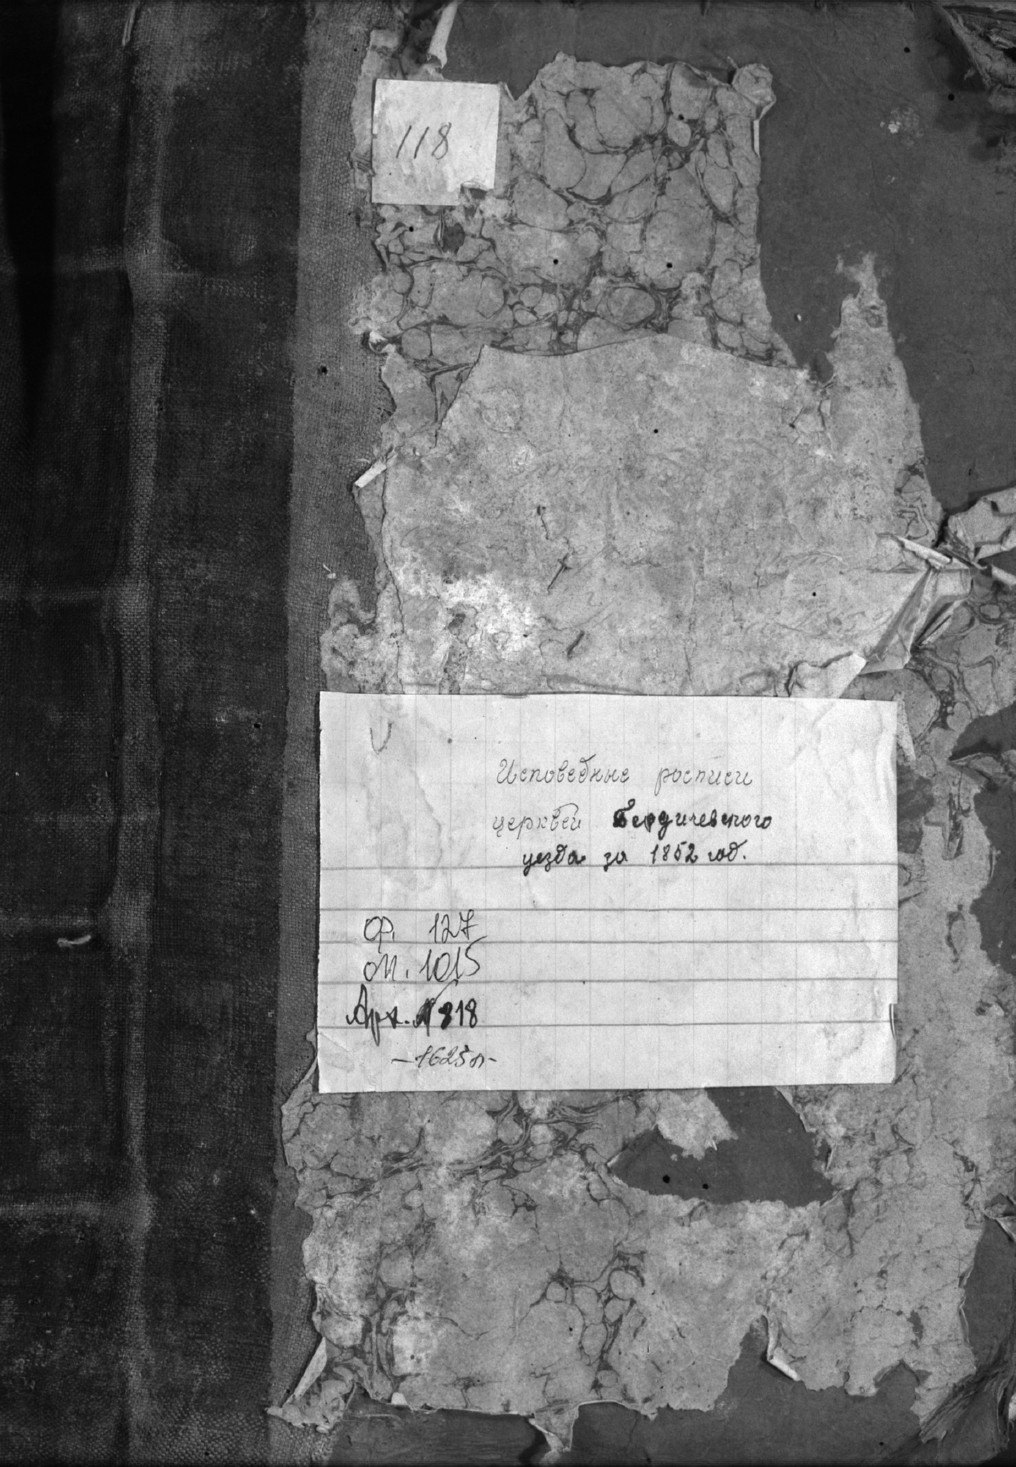 118
Исповедные росписи
церквей Бердичевского
уезда за 1852 год.
ф. 127
оп. 1015
Арх. № 118
–1625 л–